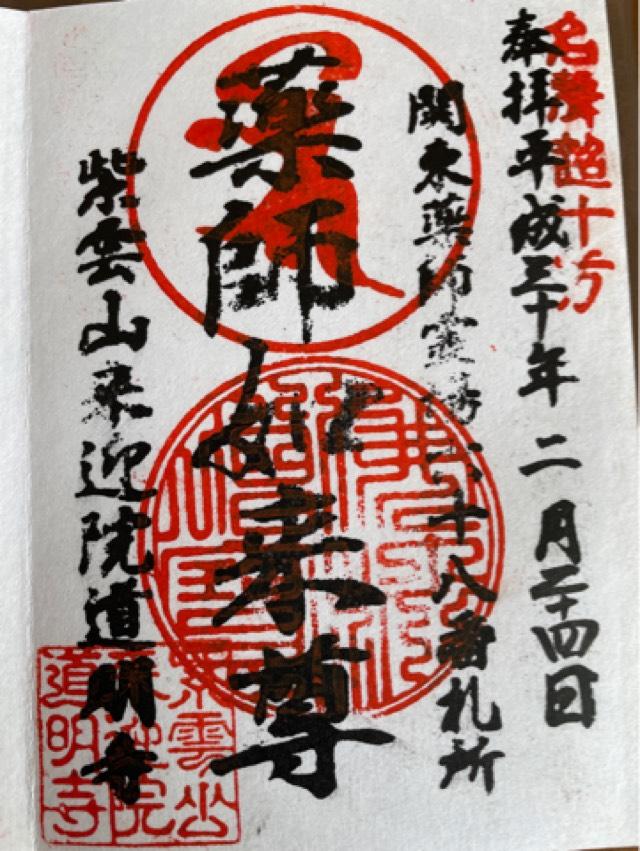 名聲超十方
奉拝平成三十年二月二十四日
関東薬師霊場六十八番札所
薬師如来尊
紫雲山来迎院道明寺
紫雲山
来迎院
道明寺